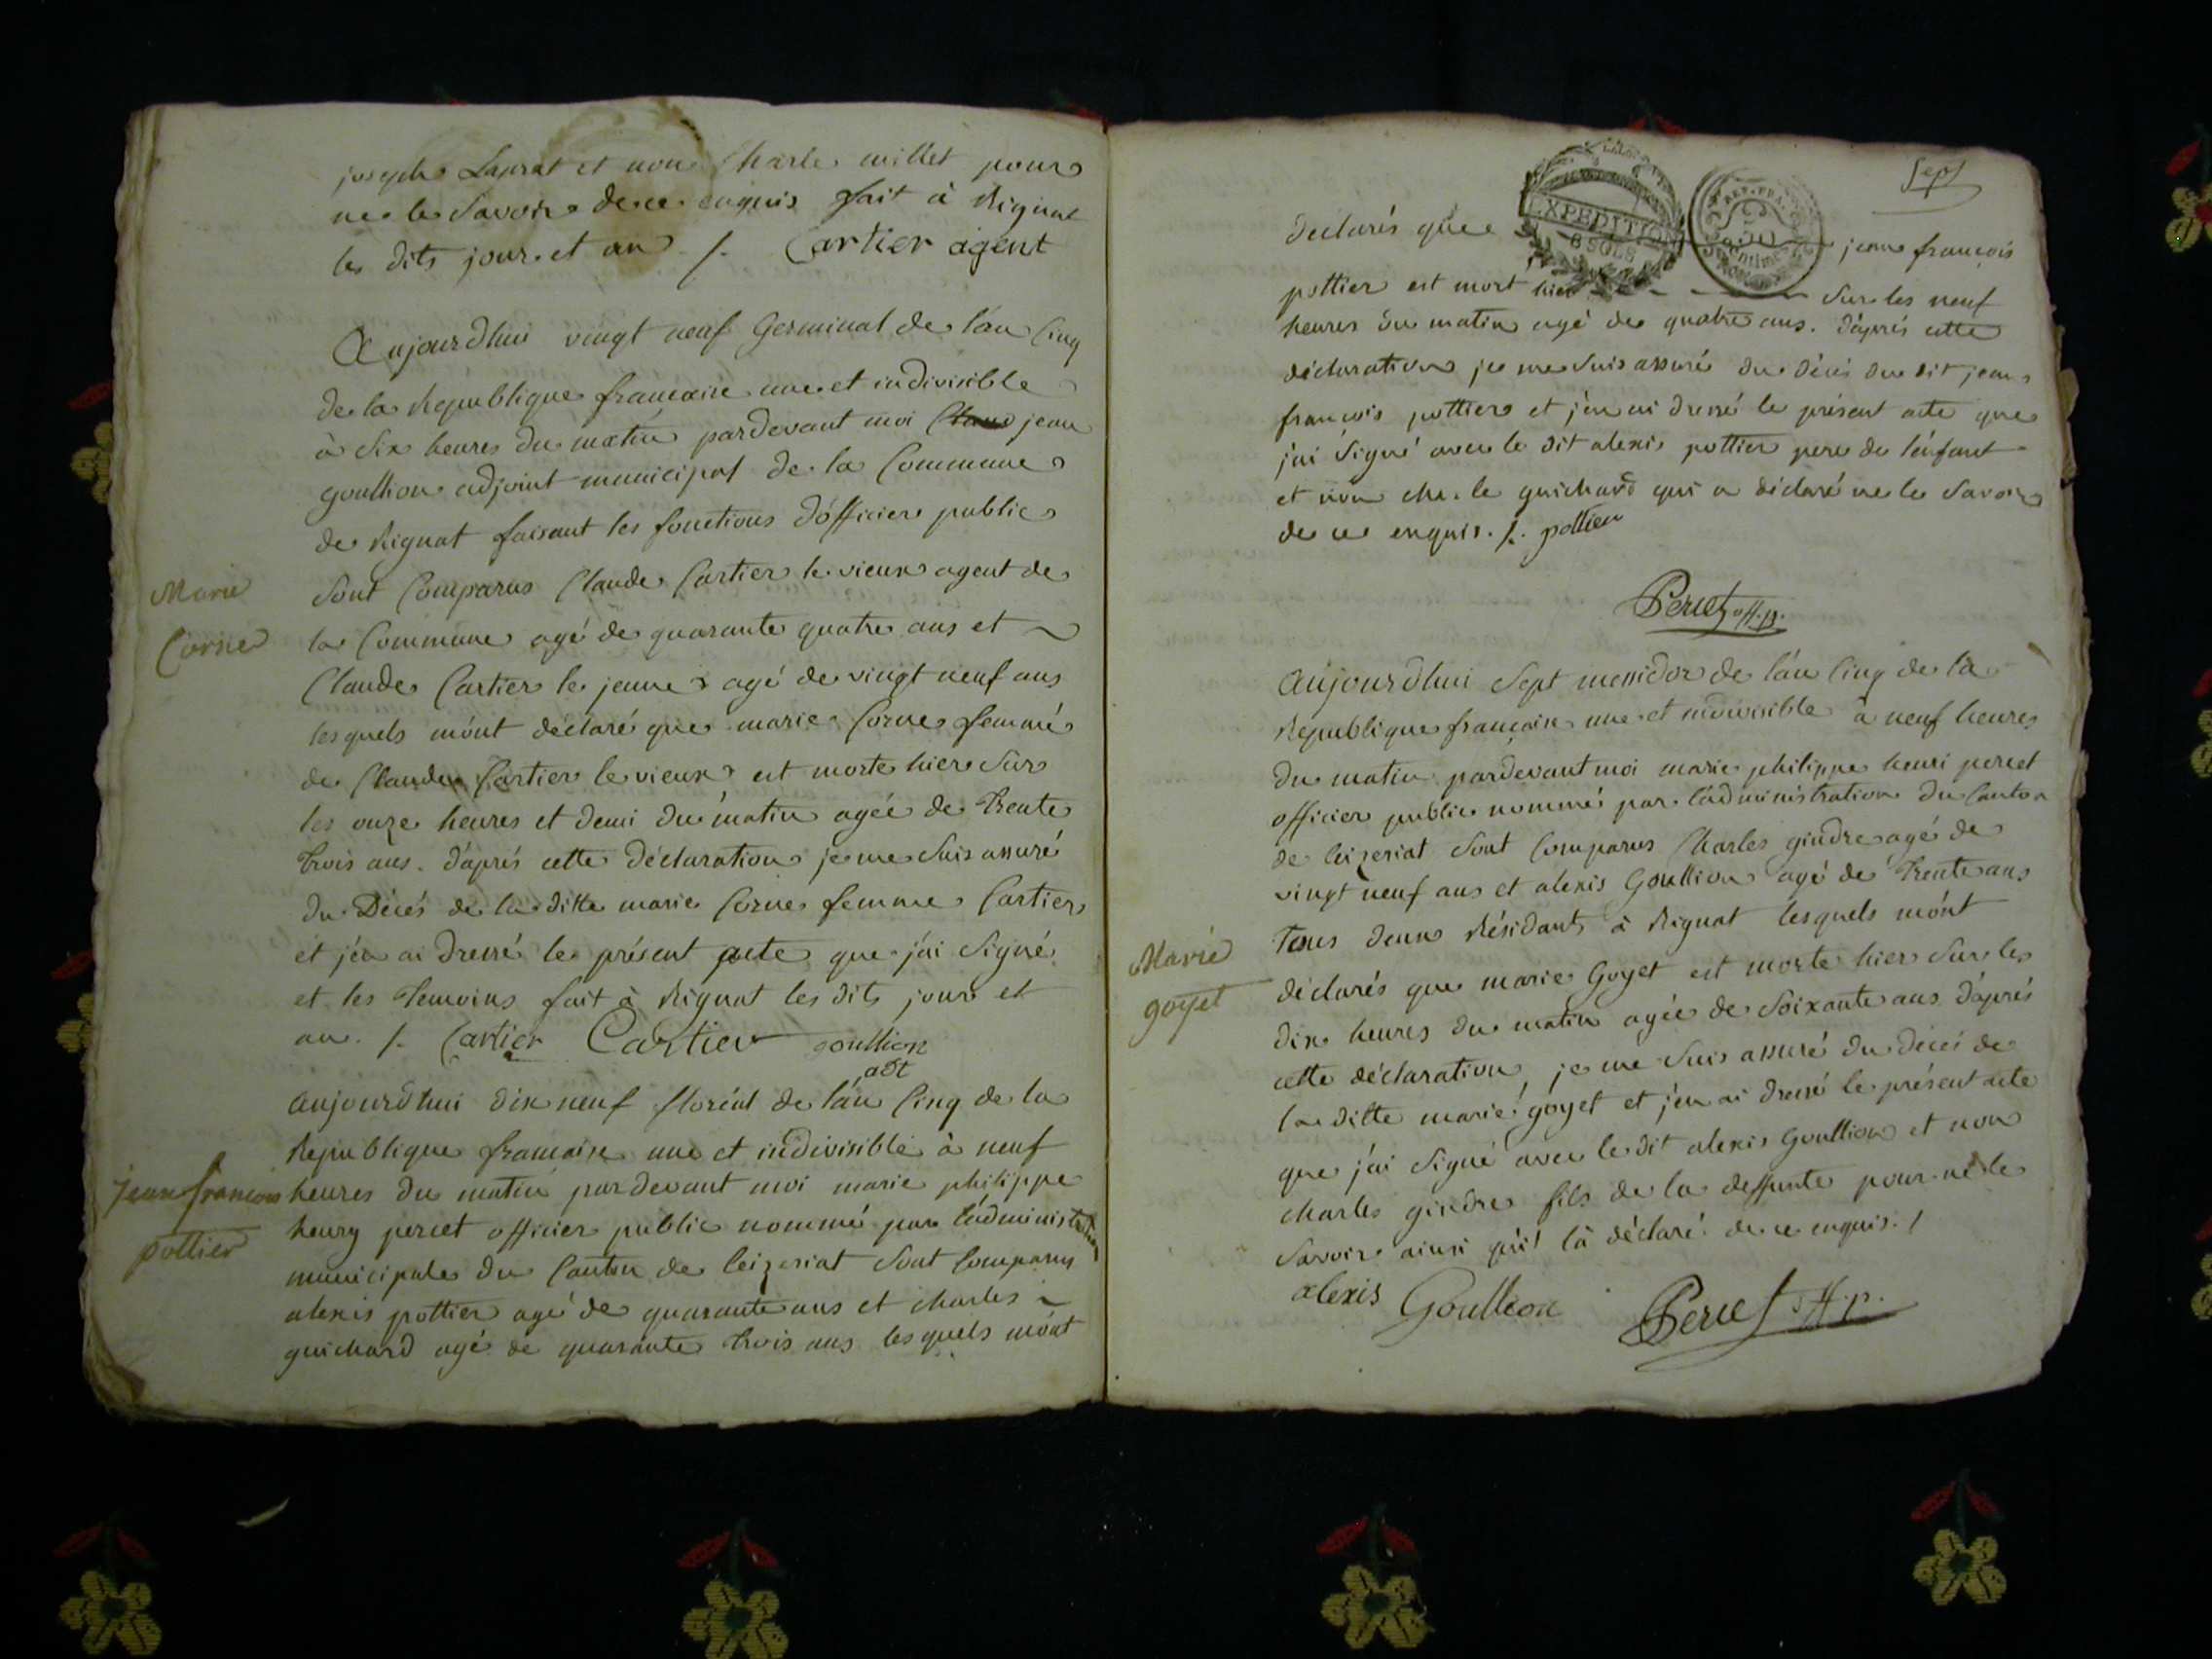 joseph Laprat et non Charle millet pour
ne le Savoir de ce enquis fait à Rignat
les dits jour et an /. Cartier agent
Aujourdhui vingt neuf Germinal de l'an Cinq
de la Republique francaise une et indivisible
à Six heures du matin pardevant moi jean
goullion adjoint municipal de la Commune
de Rignat faisant les fonctions d'officier public
Marie
Corne
Sont Comparus Claude Cartier le vieux agent de
la Commune agé de quarante quatre ans et
Claude Cartier le jeune agé de vingt neuf ans
lesquels m'ont déclaré que marie Corne femme
de Claude Cartier le vieux est morte hier Sur
les onze heures et demi du matin agée de Trente
trois ans. d'aprés cette déclaration je me Suis assuré
du Décés de la ditte marie Corne femme Cartier
et j'en ai dressé le présent acte que j'ai Signé
et les Temoins fait à Rignat les dits jour et
an. /. Cartier Cartier goullion
adt
Aujourdhui dix neuf floréal de l'an Cinq de la
Republique francaise une et indivisible à neuf
jean francois
pottier
heures du matin pardevant moi marie philippe
henry percet officier public nommé par l'administration
municipale du Canton de Ceizeriat Sont Comparus
alexis pottier agé de quarante ans et charles
guichard agé de quarante trois ans lesquels m'ont
Sept
EXPEDITION
8 SOLS
REP. FRA.
50
Centimes
declarés que jean françois
pottier est mort hier Sur les neuf
heures du matin agé de quatre ans. d'aprés cette
déclaration je me Suis assuré du décés du dit jean
francois pottier et j'en ai dressé le présent acte que
j'ai Signé avec le dit alexis pottier pere de l'enfant
et non che. le guichard qui a déclaré ne le Savoir
de ce enquis. /. pottier
Percet off. p.
Aujourdhui Sept messidor de l'an Cinq de la
Republique française une et indivisible à neuf heures
du matin pardevant moi marie philippe henri percet
officier public nommé par l'administration du Canton
de Ceizeriat Sont Comparus Charles gindre agé de
vingt neuf ans et alexis Goullion agé de Trente ans
Marie
goyet
Tous deux Résidants à Rignat lesquels m'ont
déclarés que marie Goyet est morte hier Sur les
dix heures du matin agée de Soixante ans d'aprés
cette déclaration, je me Suis assuré du décés de
la ditte marie goyet et j'en ai dressé le présent acte
que j'ai Signé avec le dit alexis Goullion et non
charles gindre fils de la deffunte pour ne le
Savoir ainsi qu'il l'a déclaré de ce enquis. /
alexis Goullion Percet off. p.